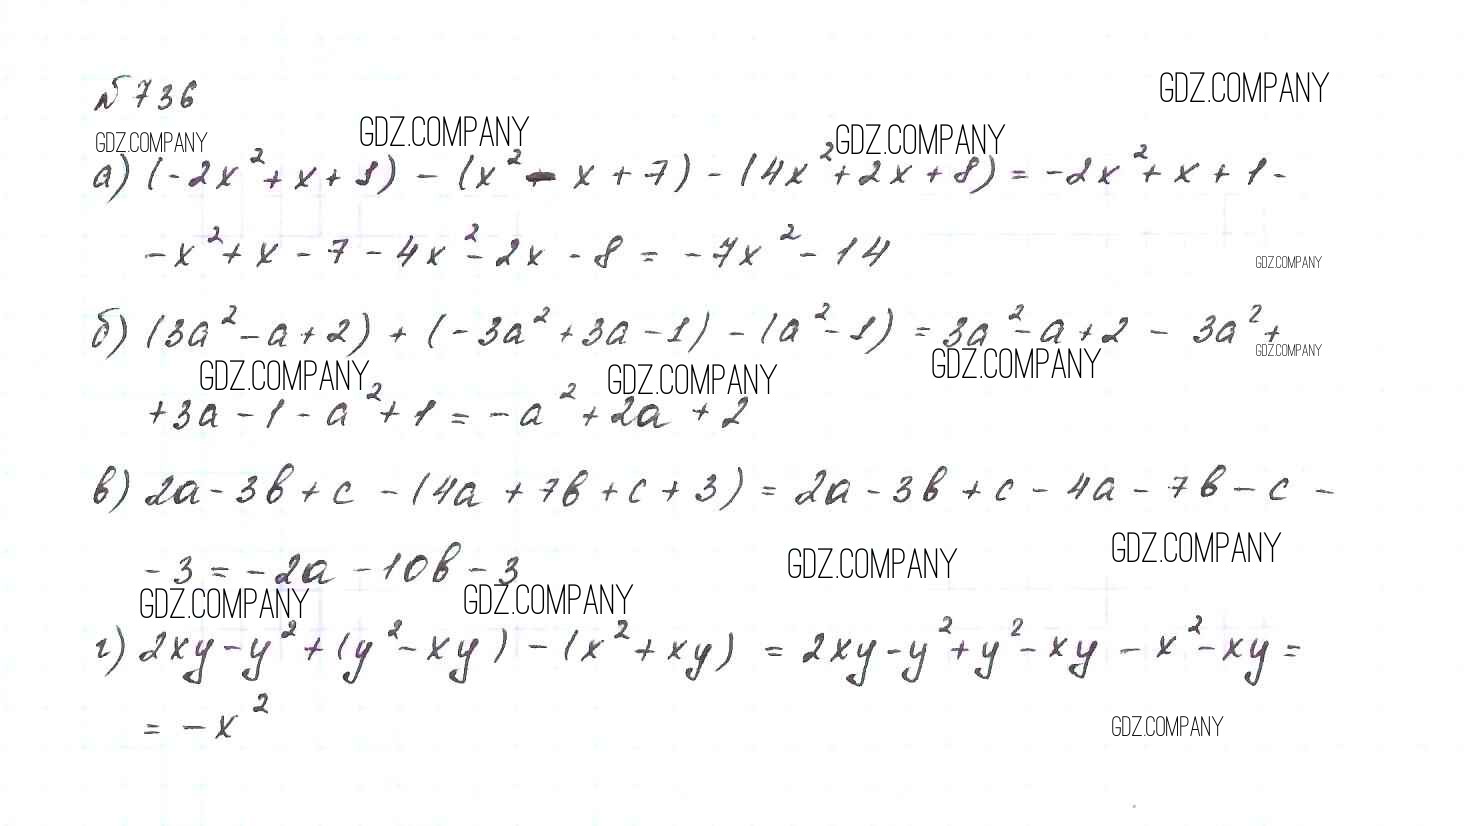 №736
GDZ.COMPANY
GDZ.COMPANY GDZ.COMPANY GDZ.COMPANY
а) (-2x²+x+1) - (x² - x + 7) - (4x²+2x+8) = -2x²+x+1-
-x²+x-7-4x²-2x-8 = -7x²-14
GDZ.COMPANY
б) (3a²-a+2) + (-3a²+3a-1) - (a²-1) = 3a²-a+2 - 3a²+
GDZ.COMPANY
GDZ.COMPANY GDZ.COMPANY GDZ.COMPANY
+3a-1-a²+1 = -a²+2a+2
в) 2a-3b+c-(4a+7b+c+3) = 2a-3b+c-4a-7b-c-
GDZ.COMPANY GDZ.COMPANY
-3=-2a-10b-3
GDZ.COMPANY GDZ.COMPANY
г) 2xy-y²+(y²-xy)-(x²+xy) = 2xy-y²+y²-xy-x²-xy=
= -x²
GDZ.COMPANY